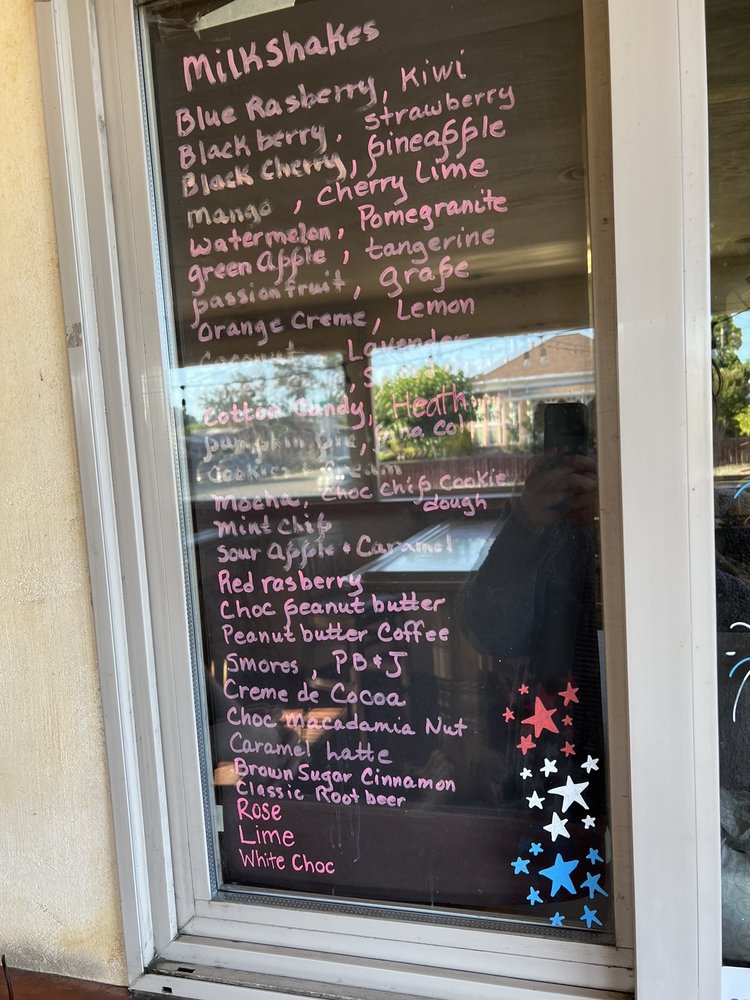 Milkshakes
Blue Rasberry, Kiwi
Blackberry, strawberry
Black Cherry, pineapple
mango, Cherry Lime
Watermelon, Pomegranite
green Apple, tangerine
passionfruit, grape
Orange Creme, Lemon
Coconut Lavender
Cotton Candy, Heath
pumpkin pie, pina Colada
Cookies & Cream
Mocha, Choc Chip Cookie
dough
Mint Chip
Sour Apple & Caramel
Red rasberry
Choc peanut butter
Peanut butter Coffee
Smores, PB & J
Creme de Cocoa
Choc Macadamia Nut
Caramel Latte
Brown Sugar Cinnamon
Classic Root beer
Rose
Lime
White Choc